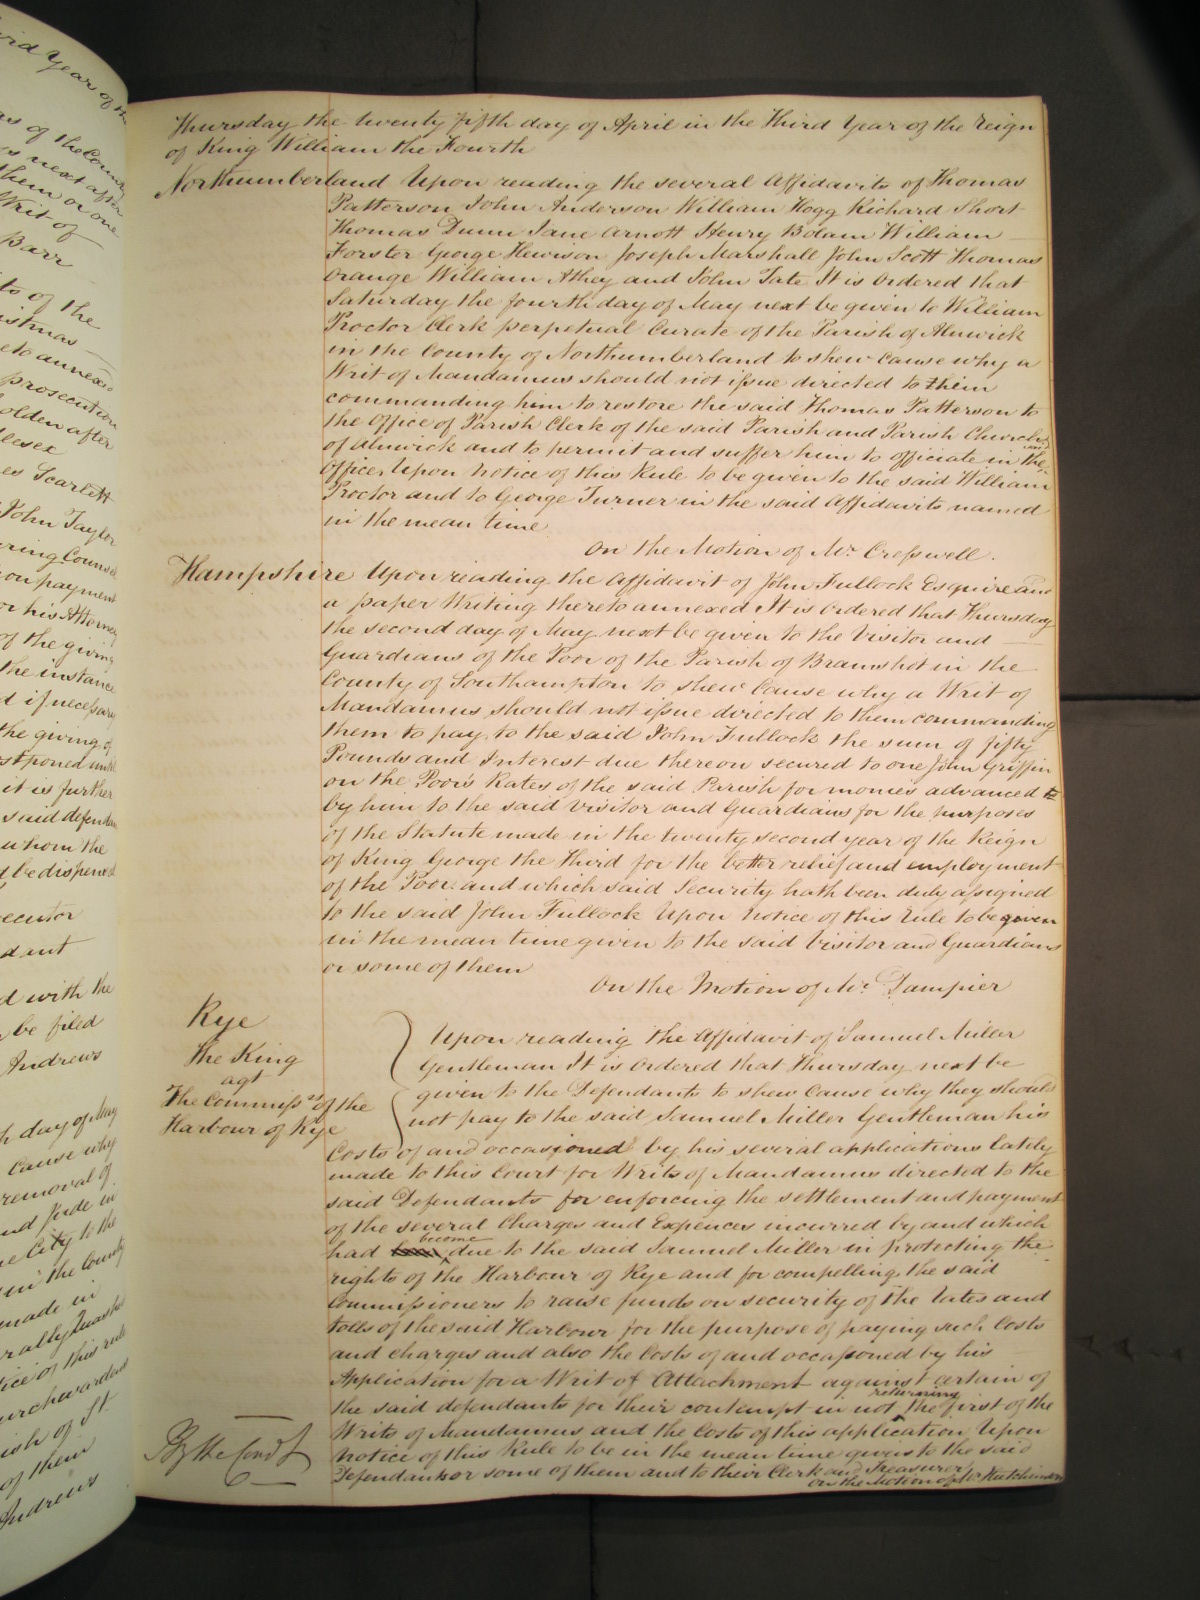 Thursday the twenty fifth day of April in the Third Year of the reign
of King William the Fourth
Northumberland Upon reading the several Affidavits of Thomas
Patterson John Anderson William Hogg Richard Short
Thomas Dunn Jane Arnott Henry Bolam William
Forster George Hewison Joseph Marshall John Scott Thomas
Grange William Athey and John Tate It is Ordered that
Saturday the fourth day of May next be given to William
Proctor Clerk perpetual Curate of the Parish of Alnwick
in the County of Northumberland to shew cause why a
Writ of Mandamus should not issue directed to them
commanding him to restore the said Thomas Patterson to
the Office of Parish Clerk of the said Parish and Parish Church
of Alnwick and to permit and suffer him to officiate in the said
Office Upon notice of this Rule to be given to the said William
Proctor and to George Turner in the said Affidavits named
in the mean time
On the Motion of Mr. Cresswell.
Hampshire Upon reading the Affidavit of John Fullock Esquire and
a paper Writing thereto annexed It is Ordered that Thursday
the second day of May next be given to the Visitor and
Guardians of the Poor of the Parish of Bramshot in the
County of Southampton to shew Cause why a Writ of
Mandamus should not issue directed to them commanding
them to pay to the said John Fullock the sum of fifty
Pounds and Interest due thereon secured to one John Griffin
on the Poor's Rates of the said Parish for monies advanced
by him to the said Visitor and Guardians for the purposes
of the Statute made in the twenty second year of the Reign
of King George the third for the better relief and employment
of the Poor and which said Security hath been duly assigned
to the said John Fullock Upon Notice of this rule to be given
in the mean time given to the said Visitor and Guardians
or some of them
On the Motion of Mr. Dampier
Rye
The King
agt
The Commissrs of the
Harbour of Rye
Upon reading the Affidavit of Samuel Miller
Gentleman It is Ordered that Thursday next be
given to the Defendants to shew Cause why they should
not pay to the said Samuel Miller Gentleman his
Costs of and occasioned by his several applications lately
made to this Court for Writs of Mandamus directed to the
said Defendants for enforcing the settlement and payment
of the several Charges and Expences incurred by and which
had become due to the said Samuel Miller in protecting the
rights of the Harbour of Rye and for compelling the said
Commissioners to raise funds on security of the rates and
tolls of the said Harbour for the purpose of paying such Costs
and charges and also the Costs of and occasioned by his
Application for a Writ of Attachment against certain of
the said defendants for their contempt in not returning the first of the
Writs of Mandamus and the Costs of this application Upon
notice of this Rule to be in the mean time given to the said
Defendants or some of them and to their Clerk and Treasurer
On the Motion of Mr. Hutchinson
By the Court